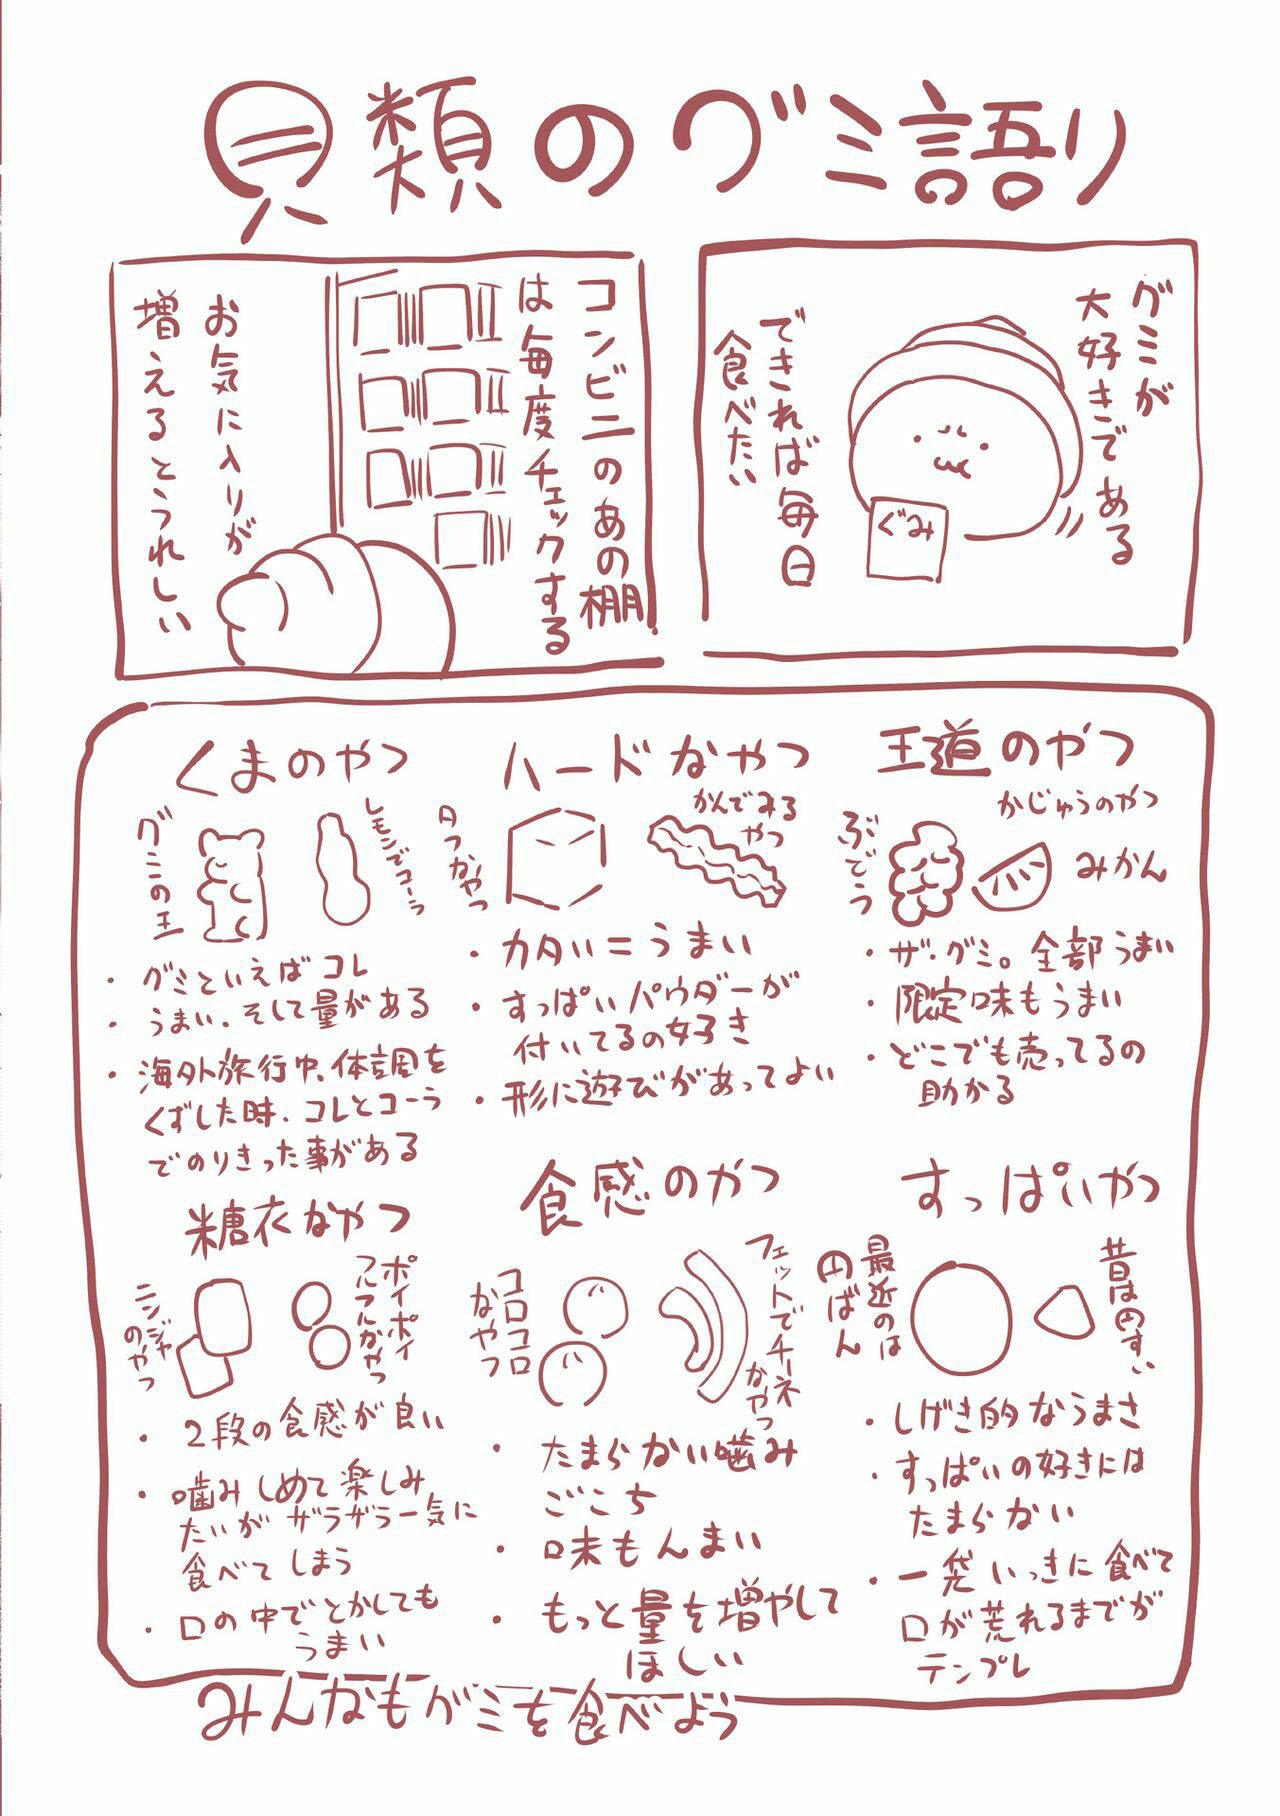 貝類のグミ語り
グミが
大好きである
できれば毎日
食べたい
ぐみ
コンビニのあの棚
は毎度チェックする
お気に入りが
増えるとうれしい
王道のやつ
かじゅうのやつ
ぶどう
みかん
・ザ・グミ。全部うまい
・限定味もうまい
・どこでも売ってるの
助かる
ハードなやつ
かんでみる
やつ
カタいやつ
・カタい=うまい
・すっぱいパウダーが
付いてるの好き
・形に遊びがあってよい
くまのやつ
レモンでコーラ
グミの王
・グミといえばコレ
・うまい、そして量がある
・海外旅行中、体調を
くずした時、コレとコーラ
でのりきった事がある
すっぱいやつ
昔は円すい
最近のは
円ばん
・しげき的なうまさ
・すっぱいの好きには
たまらない
・一発いっきに食べて
口が荒れるまでが
テンプレ
食感のやつ
フェットでチーネ
なやつ
コロコロ
なやつ
・たまらない噛み
ごこち
・味もんまい
・もっと量を増やして
ほしい
糖衣なやつ
ポイポイ
フルフルなやつ
ニンジャ
のやつ
・2段の食感が良い
・噛みしめて楽しみ
たいがザラザラ一気に
食べてしまう
・口の中でとかしても
うまい
みんなもグミを食べよう